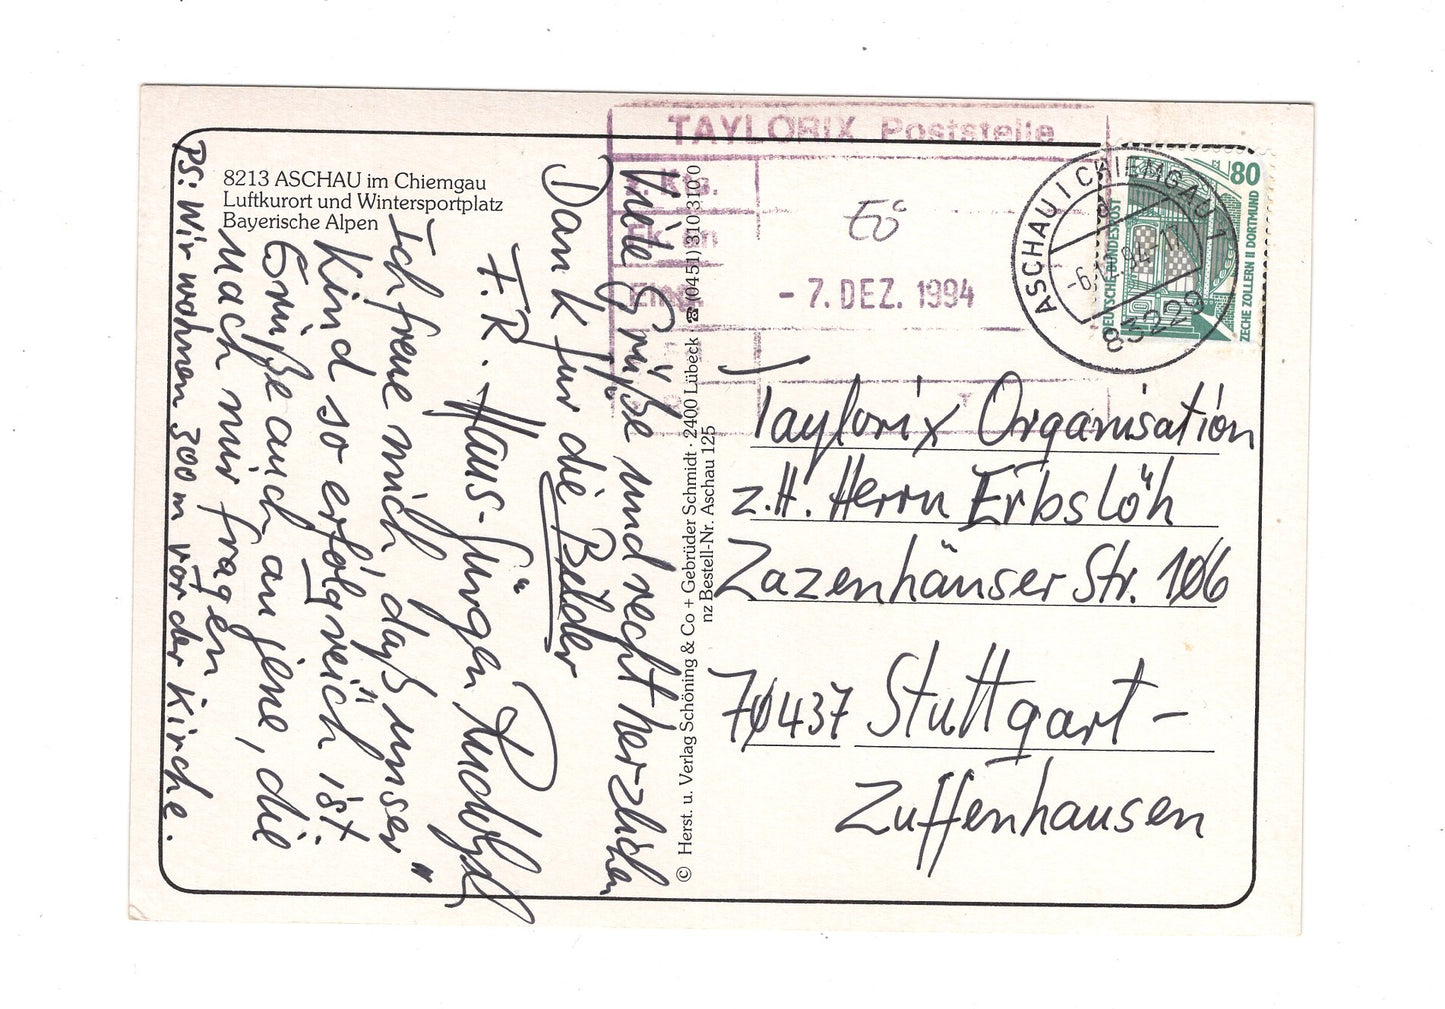 8213 ASCHAU im Chiemgau
Luftkurort und Wintersportplatz
Bayerische Alpen
Viele Grüße und recht herzlichen
Dank für die Bilder
Hans-Jürgen Rudolph
"Ich freue mich, daß unser
Kind so erfolgreich ist.
Grüße auch an jene, die
nach mir fragen"
PS: Wir wohnen 300 m vor der Kirche.
© Herst. u. Verlag Schöning & Co + Gebrüder Schmidt · 2400 Lübeck · ☎ (0451) 310 310 0
nz Bestell-Nr. Aschau 125
TAYLORIX Poststelle
Eö
- 7. DEZ. 1994
ASCHAU I CHIEMGAU 1
83229
80
DEUTSCHE BUNDESPOST
ZECHE ZOLLERN II DORTMUND
Taylorix Organisation
z.H. Herrn Erbslöh
Zazenhäuser Str. 106
70437 Stuttgart-
Zuffenhausen